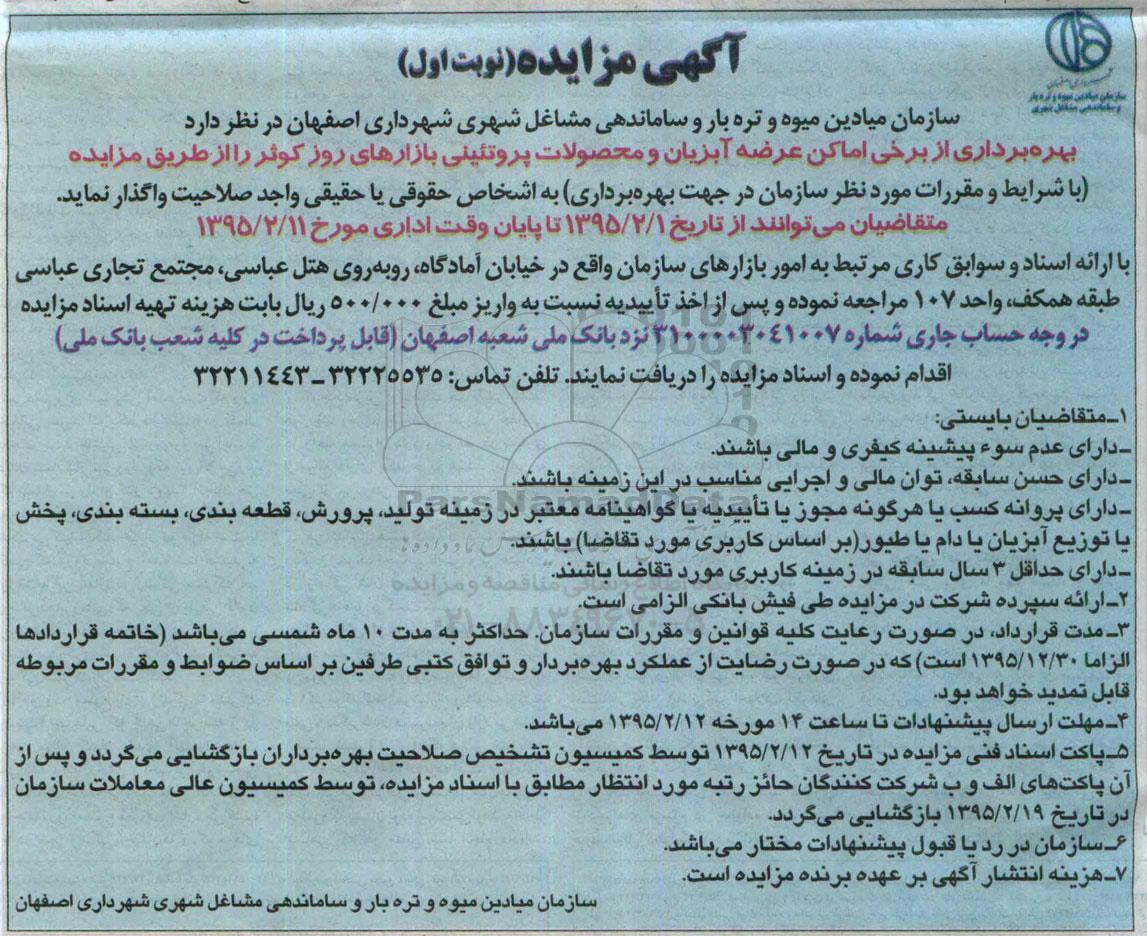 آگهی مزایده(نوبت اول)
سازمان میادین میوه و تره بار
و ساماندهی مشاغل شهری
سازمان میادین میوه و تره بار و ساماندهی مشاغل شهری شهرداری اصفهان در نظر دارد
بهره‌برداری از برخی اماکن عرضه آبزیان و محصولات پروتئینی بازارهای روز کوثر را از طریق مزایده
(با شرایط و مقررات مورد نظر سازمان در جهت بهره‌برداری) به اشخاص حقوقی یا حقیقی واجد صلاحیت واگذار نماید.
متقاضیان می‌توانند از تاریخ ۱۳۹۵/۲/۱ تا پایان وقت اداری مورخ ۱۳۹۵/۲/۱۱
با ارائه اسناد و سوابق کاری مرتبط به امور بازارهای سازمان واقع در خیابان آمادگاه، روبه‌روی هتل عباسی، مجتمع تجاری عباسی
طبقه همکف، واحد ۱۰۷ مراجعه نموده و پس از اخذ تأییدیه نسبت به واریز مبلغ ۵۰۰/۰۰۰ ریال بابت هزینه تهیه اسناد مزایده
در وجه حساب جاری شماره ۳۱۰۰۰۰۳۰۴۱۰۰۷ نزد بانک ملی شعبه اصفهان (قابل پرداخت در کلیه شعب بانک ملی)
اقدام نموده و اسناد مزایده را دریافت نمایند. تلفن تماس: ۳۲۲۲۵۵۳۵ ـ ۳۲۲۱۱۴۴۳
۱ـ متقاضیان بایستی:
ـ دارای عدم سوء پیشینه کیفری و مالی باشند.
ـ دارای حسن سابقه، توان مالی و اجرایی مناسب در این زمینه باشند.
ـ دارای پروانه کسب یا هرگونه مجوز یا تأییدیه یا گواهینامه معتبر در زمینه تولید، پرورش، قطعه بندی، بسته بندی، پخش
یا توزیع آبزیان یا دام یا طیور(بر اساس کاربری مورد تقاضا) باشند.
ـ دارای حداقل ۳ سال سابقه در زمینه کاربری مورد تقاضا باشند.
۲ـ ارائه سپرده شرکت در مزایده طی فیش بانکی الزامی است.
۳ـ مدت قرارداد، در صورت رعایت کلیه قوانین و مقررات سازمان. حداکثر به مدت ۱۰ ماه شمسی می‌باشد (خاتمه قراردادها
الزاما ۱۳۹۵/۱۲/۳۰ است) که در صورت رضایت از عملکرد بهره‌بردار و توافق کتبی طرفین بر اساس ضوابط و مقررات مربوطه
قابل تمدید خواهد بود.
۴ـ مهلت ارسال پیشنهادات تا ساعت ۱۴ مورخه ۱۳۹۵/۲/۱۲ می‌باشد.
۵ـ پاکت اسناد فنی مزایده در تاریخ ۱۳۹۵/۲/۱۲ توسط کمیسیون تشخیص صلاحیت بهره‌برداران بازگشایی می‌گردد و پس از
آن پاکت‌های الف و ب شرکت کنندگان حائز رتبه مورد انتظار مطابق با اسناد مزایده، توسط کمیسیون عالی معاملات سازمان
در تاریخ ۱۳۹۵/۲/۱۹ بازگشایی می‌گردد.
۶ـ سازمان در رد یا قبول پیشنهادات مختار می‌باشد.
۷ـ هزینه انتشار آگهی بر عهده برنده مزایده است.
سازمان میادین میوه و تره بار و ساماندهی مشاغل شهری شهرداری اصفهان
ParsNamadData